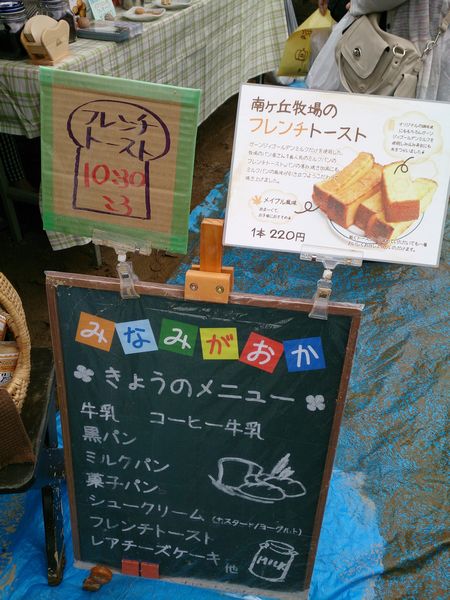 フレンチ
トースト
10:30
ころ
南ヶ丘牧場の
フレンチトースト
メイプル風味
1本 220円
みなみがおか
きょうのメニュー
牛乳 コーヒー牛乳
黒パン
ミルクパン
菓子パン
シュークリーム (カスタード/ヨーグルト)
フレンチトースト
レアチーズケーキ 他
MILK